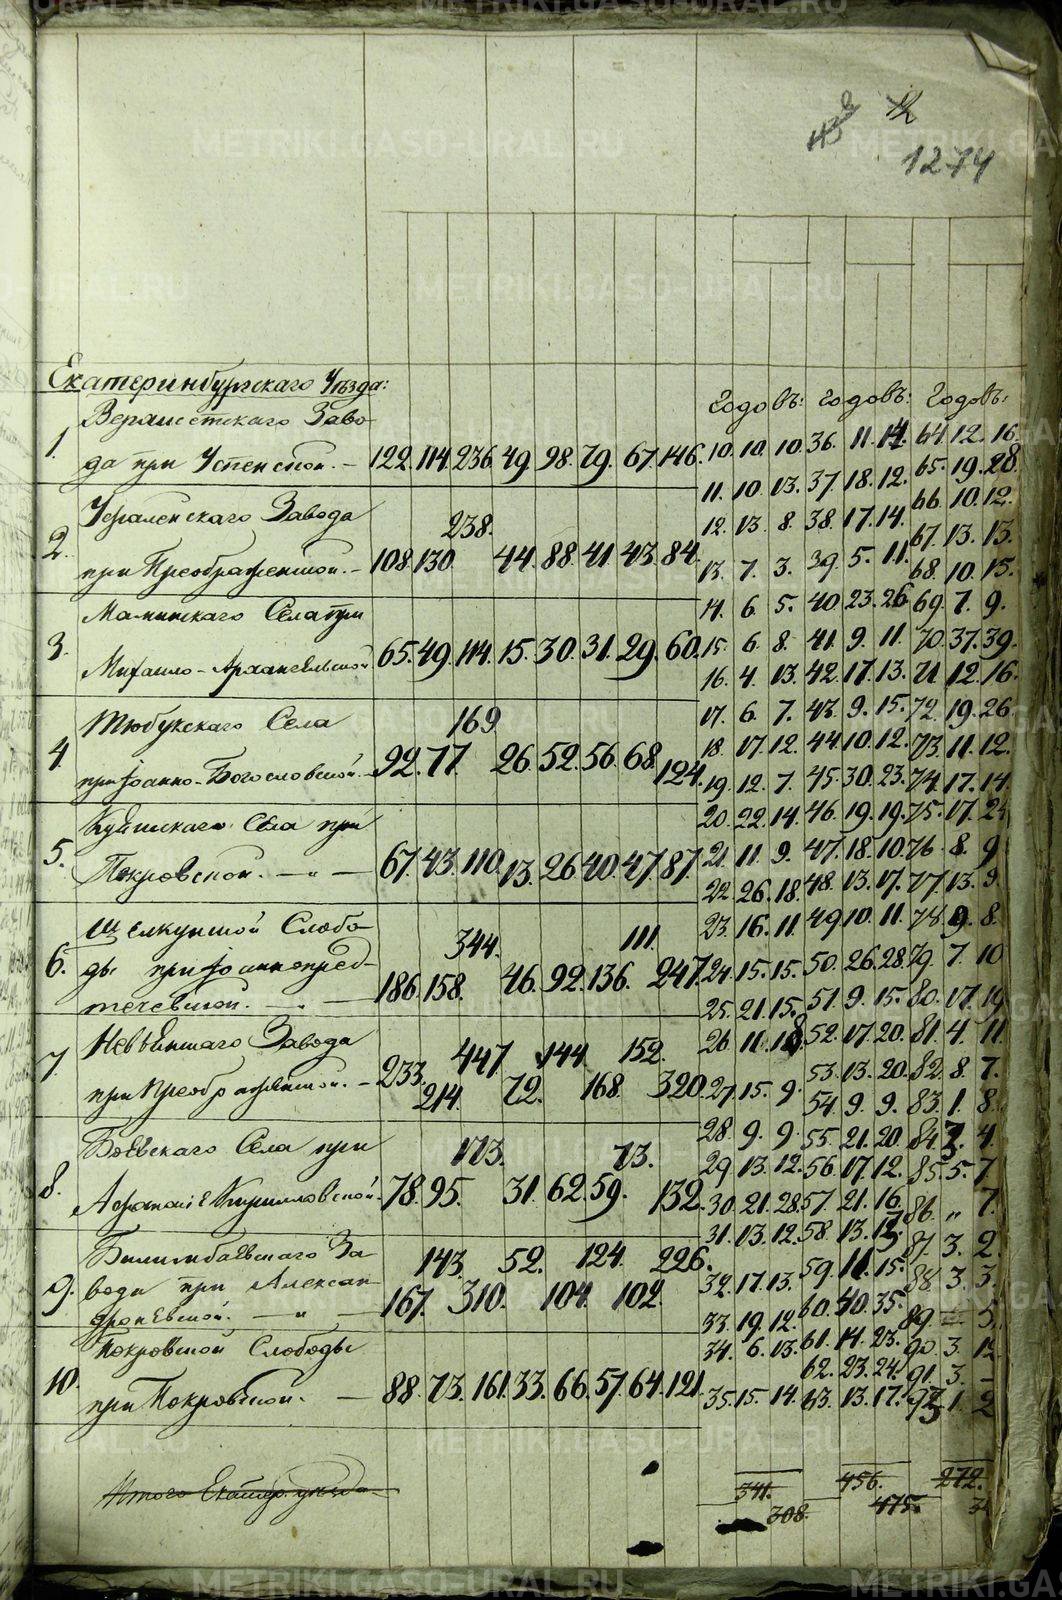 METRIKI.GASO-URAL.RU
12
1274
Екатеринбургскаго Уѣзда:
Годовъ: Годовъ: Годовъ:
1. Верхисетскаго Заво-
да при Успенской. — 122. 114. 236. 49. 98. 79. 67. 146.
2. Уфалейскаго Завода 238.
при Преображенской. — 108. 130. 44. 88. 41. 43. 84.
3. Маминскаго Села при
Михаило-Архангельской 65. 49. 114. 15. 30. 31. 29. 60.
4. Тюбукскаго Села 169
при Іоанно-Богословской. 92. 77. 26. 52. 56. 68. 124.
5. Куяшскаго Села при
Покровской. — „ — 67. 43. 110. 13. 26. 40. 47. 87.
6. Щелкунской Слобо- 344. 111.
ды при Іоаннопред-
течевской. 186. 158. 46. 92. 136. 247.
7. Невьянскаго Завода 447. 144. 152.
при Преображенской. — 233. 214. 72. 168. 320.
8. Боевскаго Села при 173. 73.
Афанасіе Кирилловской. 78. 95. 31. 62. 59. 132.
9. Билимбаевскаго За- 143. 52. 124. 226.
вода при Алексан-
дроневской. „ — 167. 310. 104. 102.
10. Покровской Слободы
при Покровской. — 88. 73. 161. 33. 66. 57. 64. 121.
10. 10. 10. 36. 11. 14. 64. 12. 16.
11. 10. 13. 37. 18. 12. 65. 19. 28.
12. 13. 8. 38. 17. 14. 66. 10. 12.
13. 7. 3. 39. 5. 11. 67. 13. 13.
14. 6. 5. 40. 23. 26. 68. 10. 15.
15. 6. 8. 41. 9. 11. 69. 7. 9.
16. 4. 13. 42. 17. 13. 70. 37. 39.
17. 6. 7. 43. 9. 15. 71. 12. 16.
18. 17. 12. 44. 10. 12. 72. 19. 26.
19. 12. 7. 45. 30. 23. 73. 11. 12.
20. 22. 14. 46. 19. 19. 74. 17. 14.
21. 11. 9. 47. 18. 10. 75. 17.
22. 26. 18. 48. 13. 17. 76. 8. 9
23. 16. 11. 49. 10. 11. 77. 13. 9.
24. 15. 15. 50. 26. 28. 78. 9. 8.
25. 21. 15. 51. 9. 15. 79. 7. 10
26. 11. 52. 17. 20. 80. 17. 19
27. 15. 9. 53. 13. 20. 81. 4. 11.
28. 9. 9. 54. 9. 9. 82. 8. 7.
29. 13. 12. 55. 21. 20. 83. 1. 8.
30. 21. 28. 56. 17. 12. 84. 4.
31. 13. 12. 57. 21. 16. 85. 5. 7
32. 17. 13. 58. 13. 86. „ 7.
33. 19. 12. 59. 11. 15. 87. 3. 2.
34. 6. 13. 60. 40. 35. 88. 3. 3.
35. 15. 14. 61. 14. 23. 89. — 5.
62. 23. 24. 90. 3. 12
63. 13. 17. 91. 3. —
1. 2
Итого Екатер. уѣзда
341. 456. 272.
308. 475.